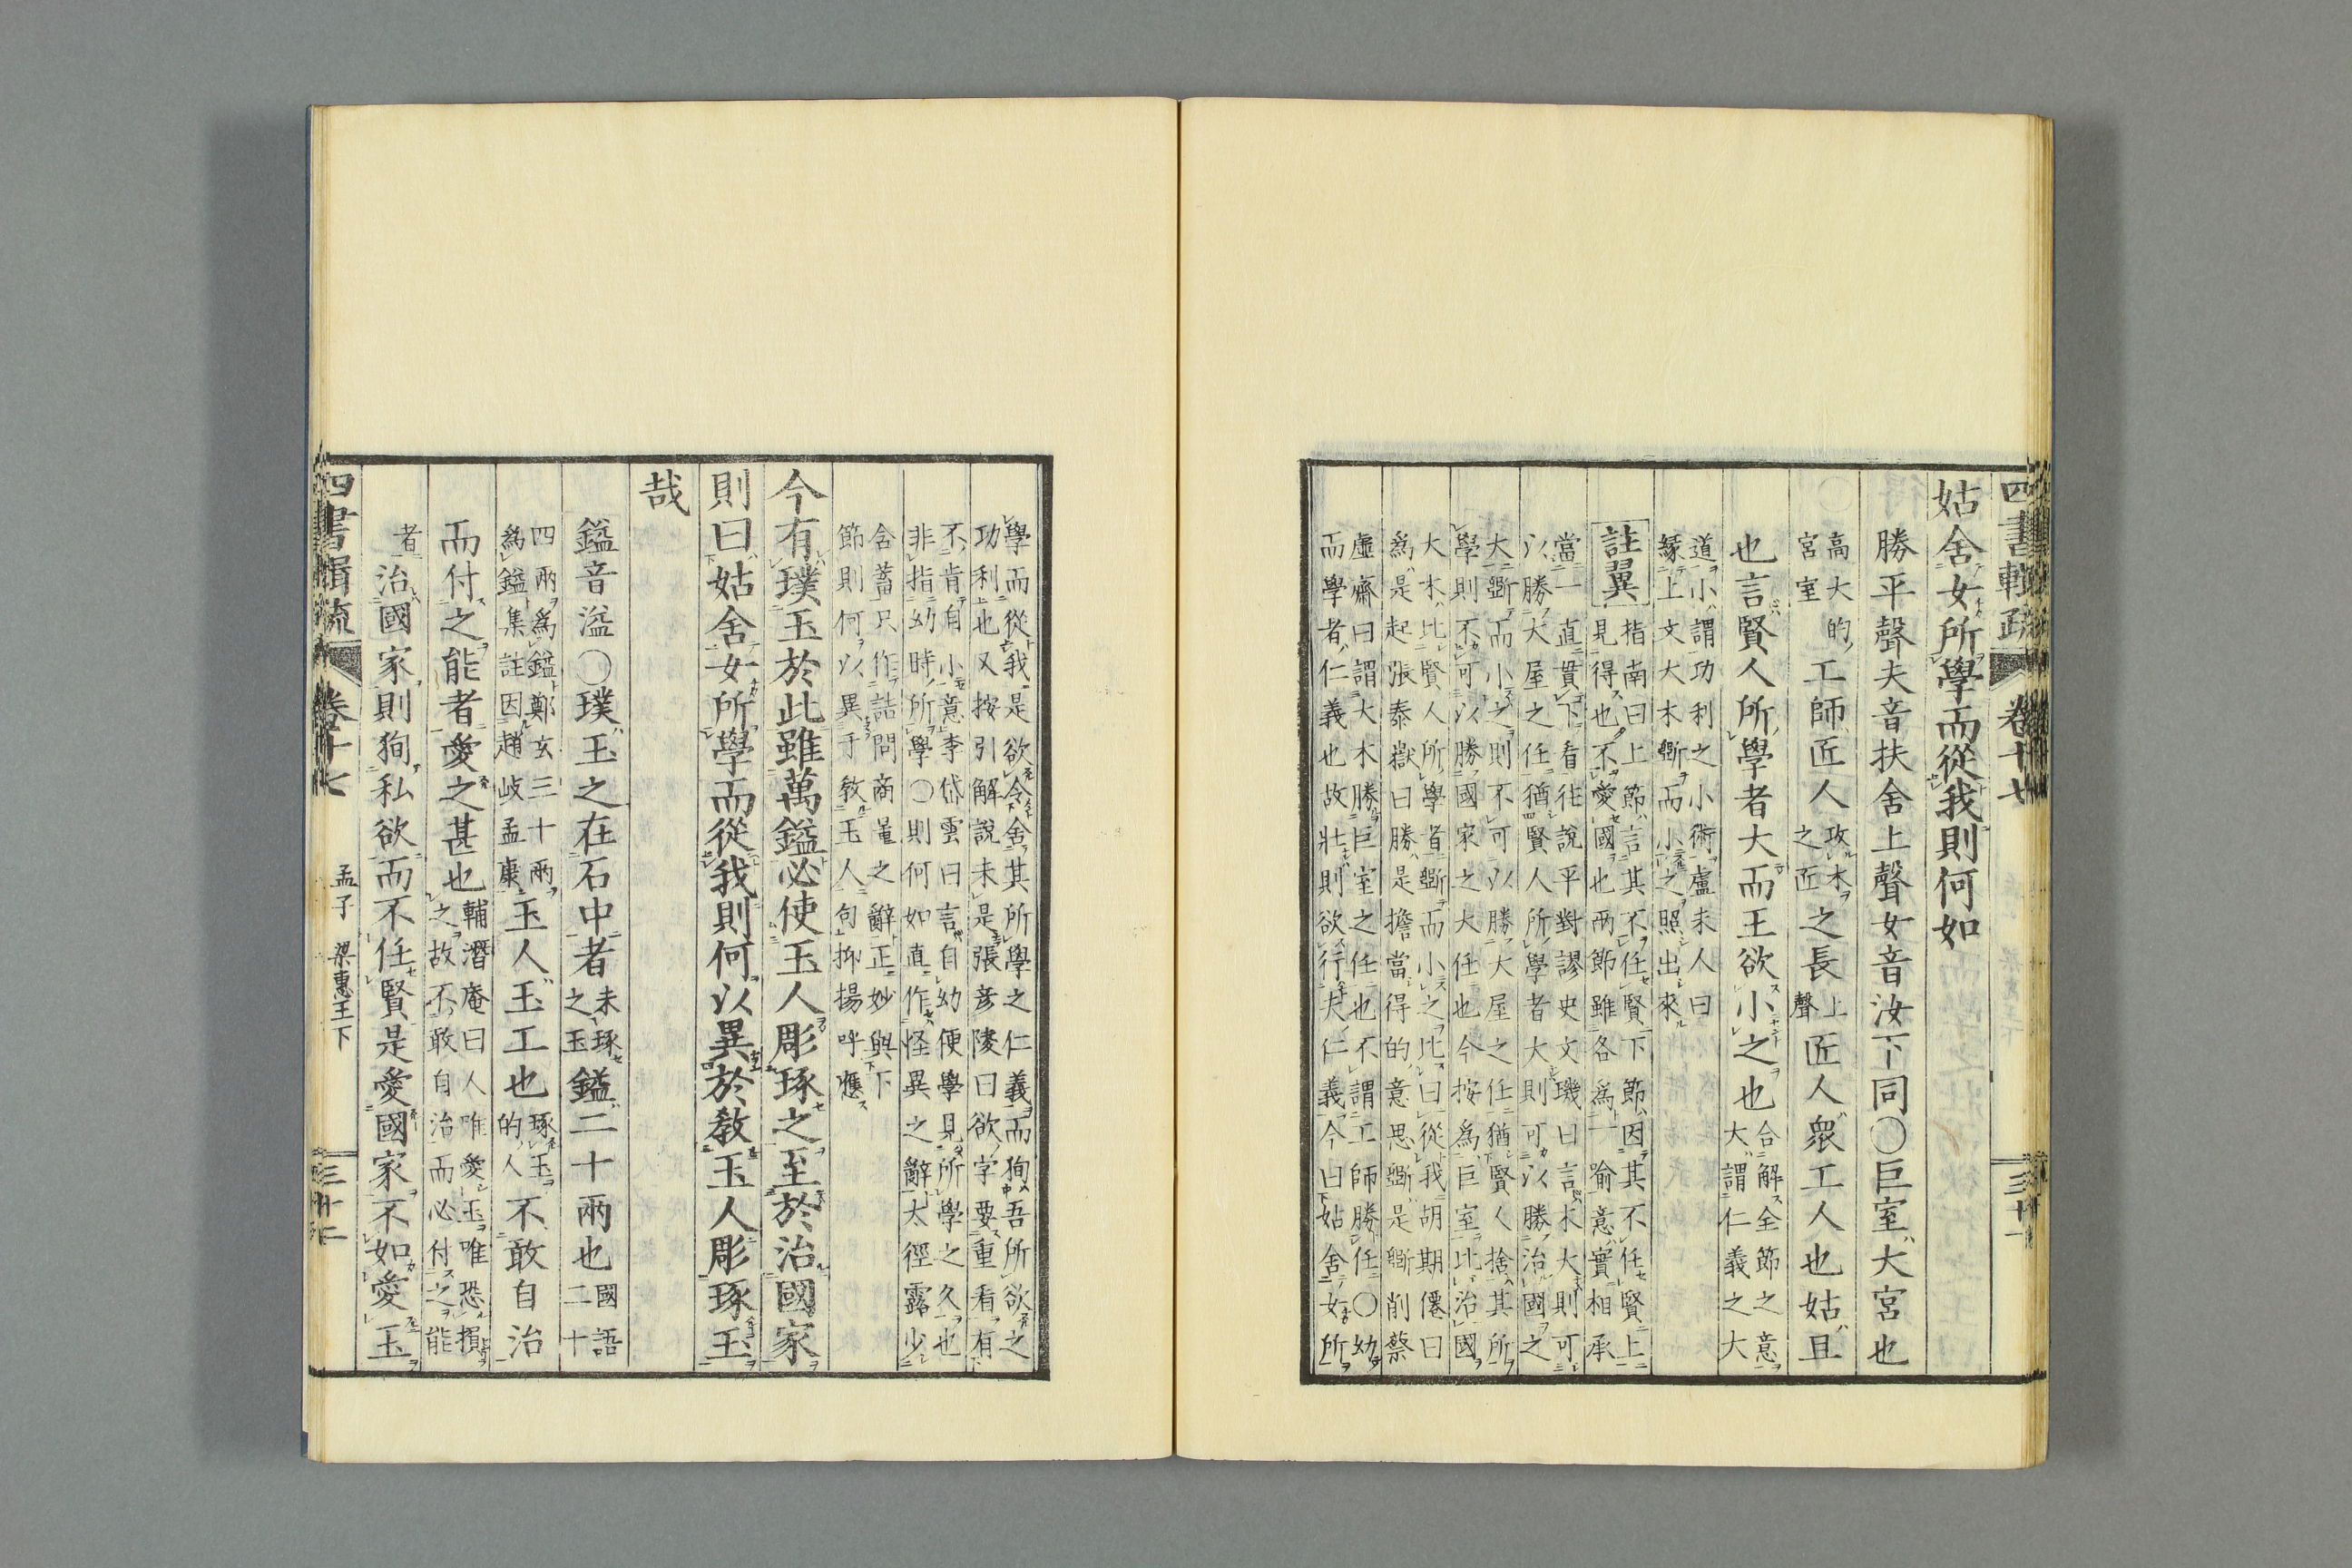 四書輯疏 卷十七 三十一
姑舍女所學而從我則何如
勝平聲夫音扶舍上聲女音汝下同〇巨室大宮也
高大的
宮室
工師匠人
攻木
之匠
之長
上
聲
匠人衆工人也姑且
也言賢人所學者大而王欲小之也
合解全節之意
大謂仁義之大
道小謂功利之小術盧未人曰
緣上文大木斲而小之照出來
註翼
指南曰上節言其不任賢下節因其不任賢上
見得也不愛國也兩節雖各爲一喻意實相承
當一直貫下看徃說平對謬史文璣曰言木大則可
以勝大屋之任猶賢人所學者大則可以勝治國之
大斲而小之則不可以勝大屋之任猶賢人捨其所
學則不可以勝國家之大任也今按爲巨室比治國
大木比賢人所學者斲而小之比曰從我胡期僊曰
爲是起張泰嶽曰勝是擔當得的意思斲是斲削蔡
虛齋曰謂大木勝巨室之任也不謂工師勝任〇幼
而學者仁義也故壯則欲行夫仁義今曰姑舍女所
學而從我是欲令舍其所學之仁義而狥吾所欲之
功利也又按引解說未是張彥陵曰欲字要重看有
不肯自小意李岱雲曰言自幼便學見所學之久也
非指幼時所學〇則何如直作怪異之辭太徑露少
含蓄只作詰問商量之辭正妙與下
節則何以異于敎玉人句抑揚呼應
今有璞玉於此雖萬鎰必使玉人彫琢之至於治國家
則曰姑舍女所學而從我則何以異於敎玉人彫琢玉
哉
鎰音溢〇璞玉之在石中者
未琢
之玉
鎰二十兩也
國語
二十
四兩爲鎰鄭玄三十兩
爲鎰集註因趙岐孟康
玉人玉工也
琢玉
的人
不敢自治
而付之能者愛之甚也
輔潛庵曰人唯愛玉唯恐損
之故不敢自治而必付之能
者
治國家則狥私欲而不任賢是愛國家不如愛玉
四書輯疏 卷十七 孟子 梁惠王下 三十二